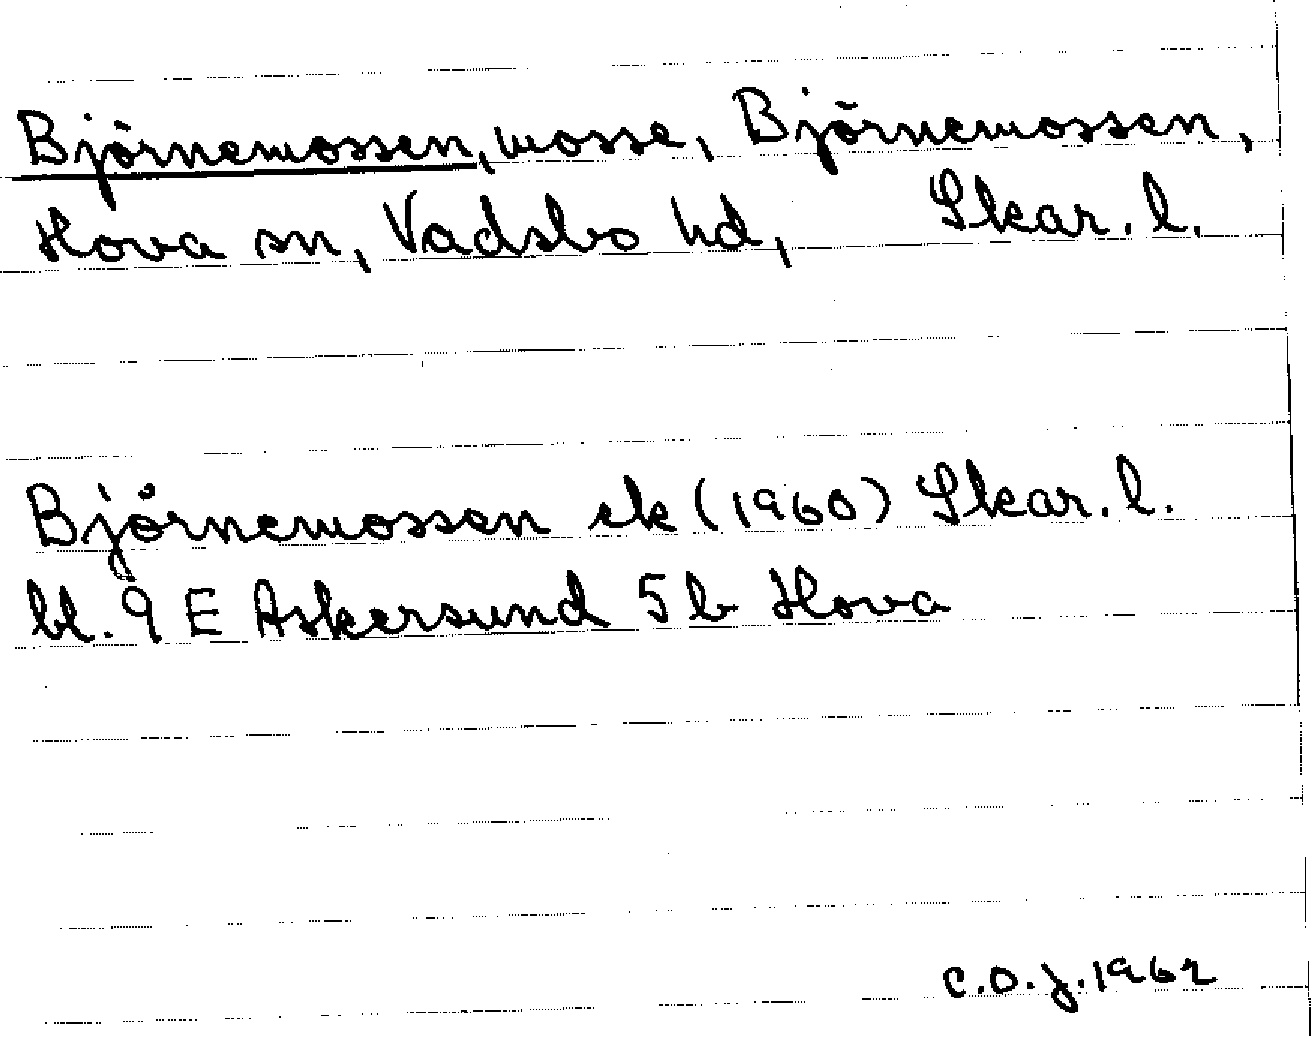 Björnemossen, mosse, Björnemossen,
Hova sn, Vadsbo hd, Skar. l.
Björnemossen ek (1960) Skar. l.
bl. 9 E Askersund 5 b Hova
C.O.J. 1962